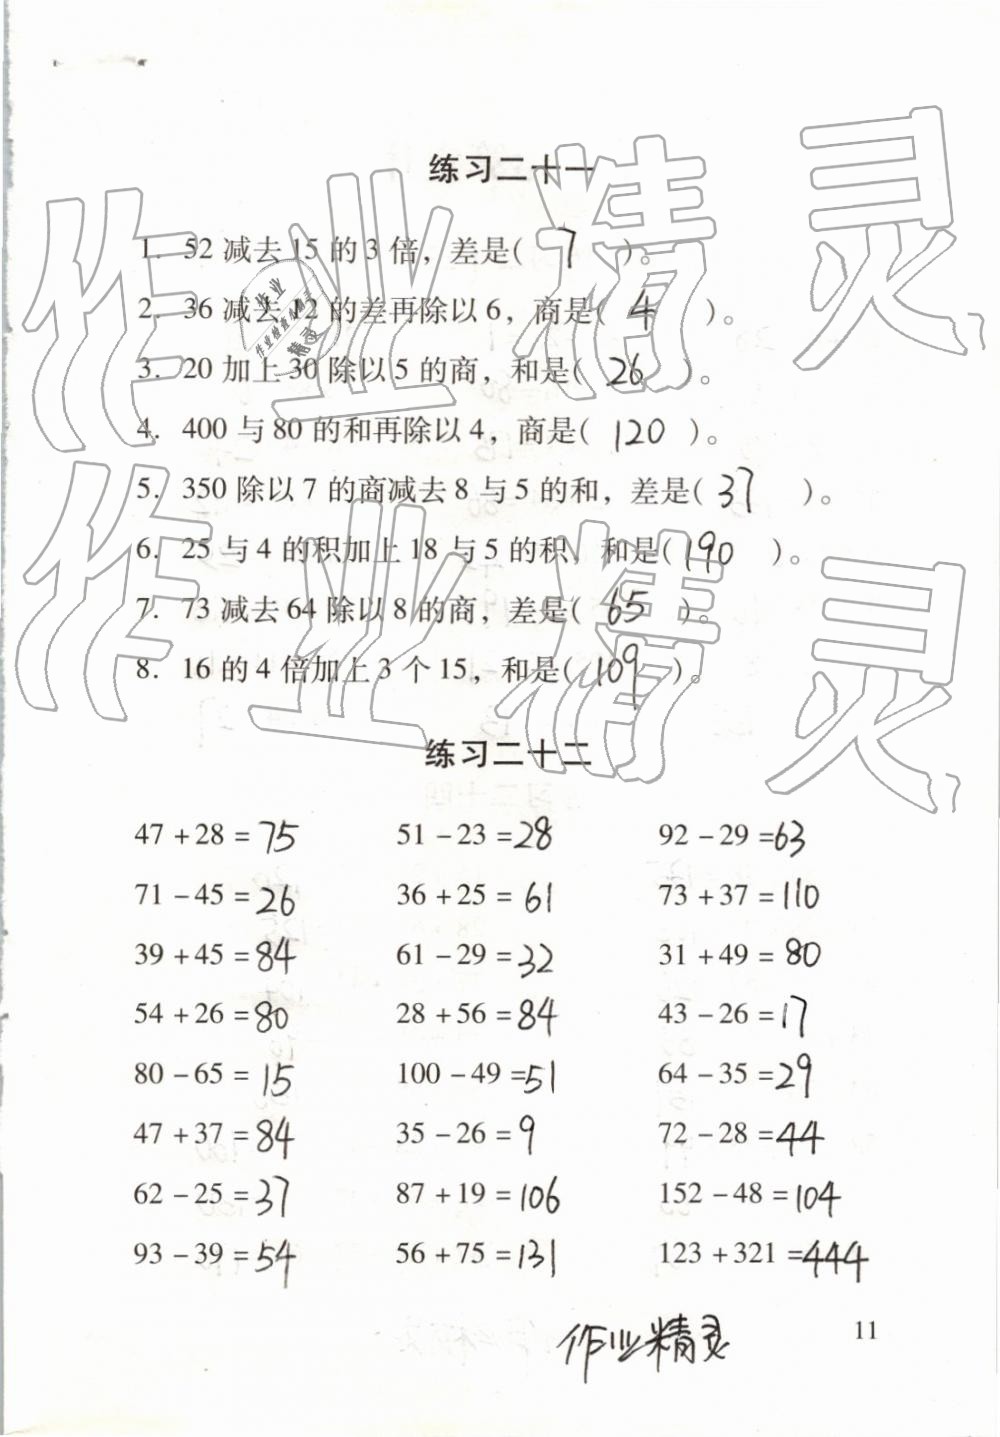 练习二十一
1. 52 减去 15 的 3 倍，差是( 7 )。
2. 36 减去 12 的差再除以 6，商是( 4 )。
3. 20 加上 30 除以 5 的商，和是( 26 )。
4. 400 与 80 的和再除以 4，商是( 120 )。
5. 350 除以 7 的商减去 8 与 5 的和，差是( 37 )。
6. 25 与 4 的积加上 18 与 5 的积，和是( 190 )。
7. 73 减去 64 除以 8 的商，差是( 65 )。
8. 16 的 4 倍加上 3 个 15，和是( 109 )。
练习二十二
47 + 28 = 75 51 - 23 = 28 92 - 29 = 63
71 - 45 = 26 36 + 25 = 61 73 + 37 = 110
39 + 45 = 84 61 - 29 = 32 31 + 49 = 80
54 + 26 = 80 28 + 56 = 84 43 - 26 = 17
80 - 65 = 15 100 - 49 = 51 64 - 35 = 29
47 + 37 = 84 35 - 26 = 9 72 - 28 = 44
62 - 25 = 37 87 + 19 = 106 152 - 48 = 104
93 - 39 = 54 56 + 75 = 131 123 + 321 = 444
作业精灵
11
作业精灵
作业精灵